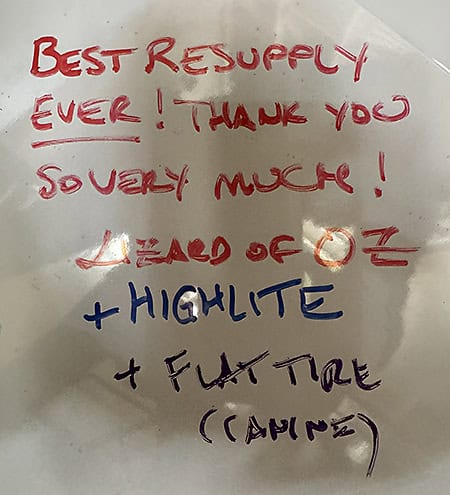 BEST RESUPPLY
EVER! THANK YOU
SO VERY MUCH!
LIZARD OF OZ
+ HIGHLITE
+ FLAT TIRE
(CANINE)